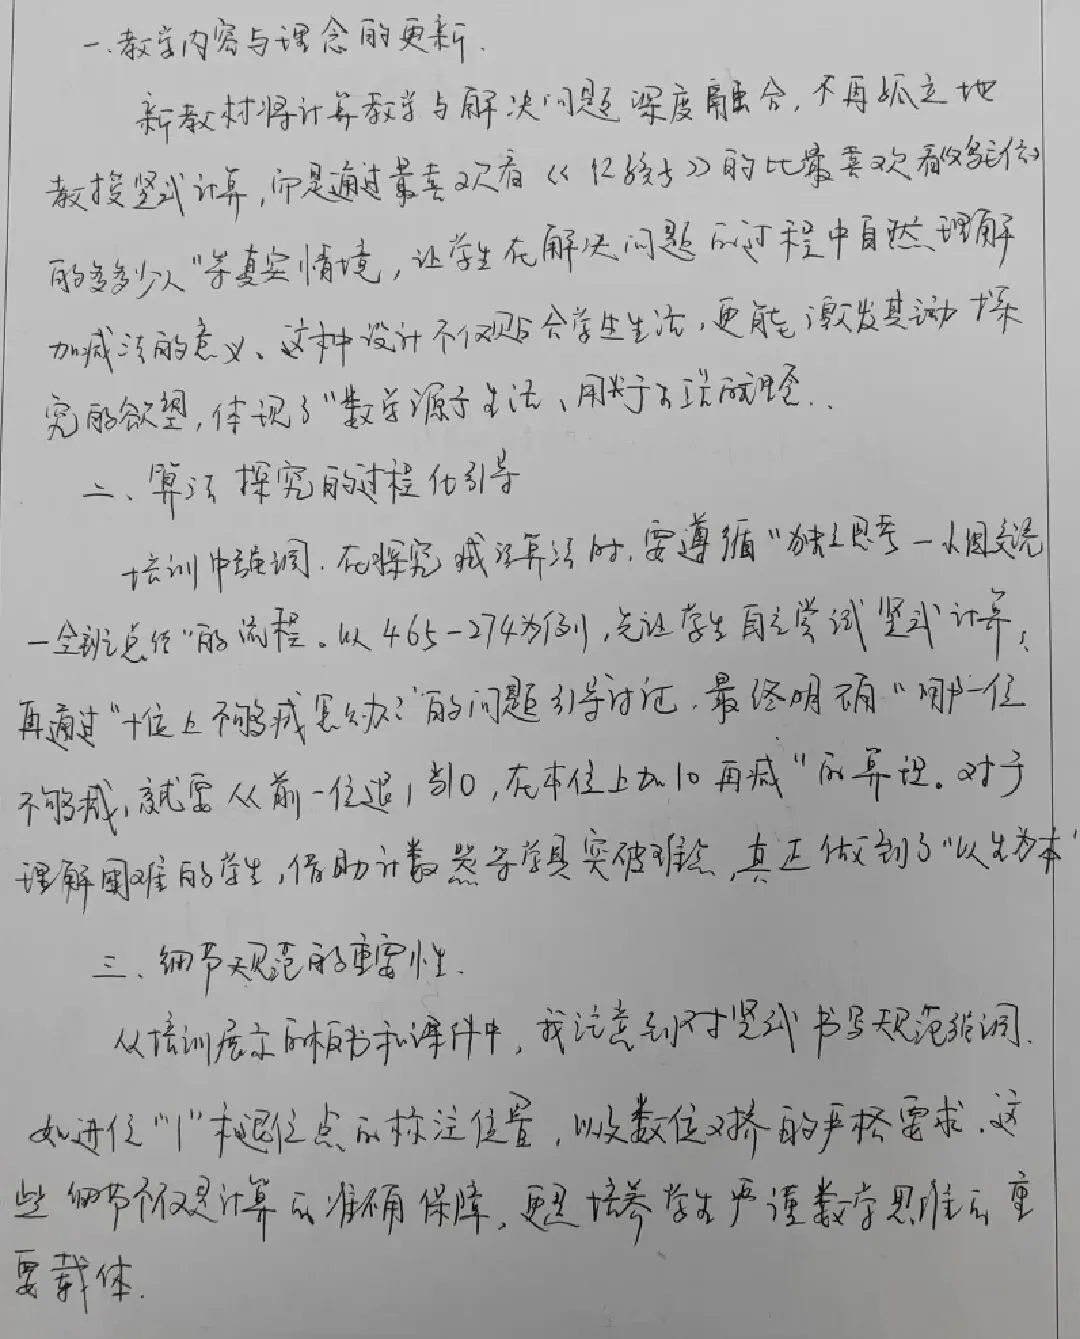 一.教学内容与理念的更新.
新教材将计算教学与解决问题深度融合,不再孤立地
教授竖式计算,而是通过最喜欢看《》的比最喜欢看
的多多少人"等真实情境,让学生在解决问题的过程中自然理解
加减法的意义、这种设计不仅贴合学生生活,更能激发其探
究的欲望,体现了"数学源于生活、用于生活的理念..
二、算法探究的过程化引导
培训中强调.在探究减法算法时,要遵循"独立思考一小组交流
一全班总结"的流程。以465-274为例,先让学生自主尝试竖式计算;
再通过"十位上不够减怎么办?"的问题引导讨论.最终明确"哪一位
不够减,就要从前一位退1当10,在本位上加10再减"的算理。对于
理解困难的学生,借助计数器等学具突破难点,真正做到了"以生为本"
三、细节规范的重要性.
从培训展示的板书和课件中,我注意到对竖式书写规范强调.
如进位"1"和退位点的标注位置,以及数位对挤的严格要求.这
些细节不仅是计算的准确保障,更是培养学生严谨数学思维的重
要载体.